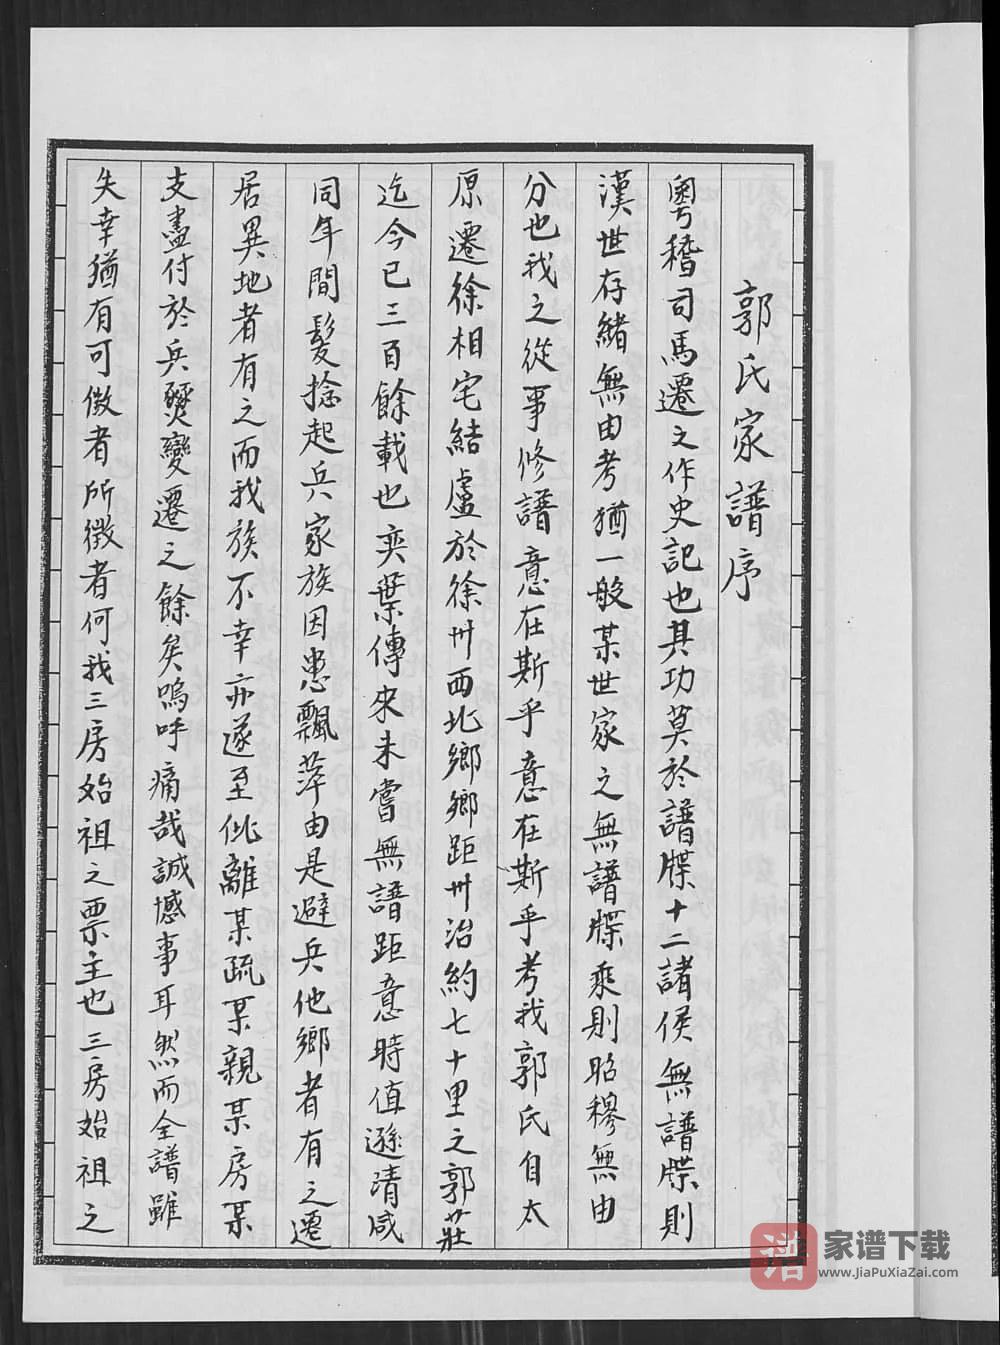 郭氏家譜序
粵稽司馬遷之作史記也其功莫於譜牒十二諸侯無譜牒則
漢世存緒無由考猶一般某世家之無譜牒乘則昭穆無由
分也我之從事修譜意在斯乎意在斯乎考我郭氏自太
原遷徐相宅結盧於徐州西北鄉鄉距州治約七十里之郭莊
迄今已三百餘載也奕葉傳來未嘗無譜距意時值遜清咸
同年間髮捻起兵家族因患飄萍由是避兵他鄉者有之遷
居異地者有之而我族不幸亦遂至仳離某疏某親某房某
支盡付於兵燹變遷之餘矣嗚呼痛哉誠憾事耳然而全譜雖
失幸猶有可徵者所徵者何我三房始祖之票主也三房始祖之
譜
家谱下载
www.JiaPuXiaZai.com